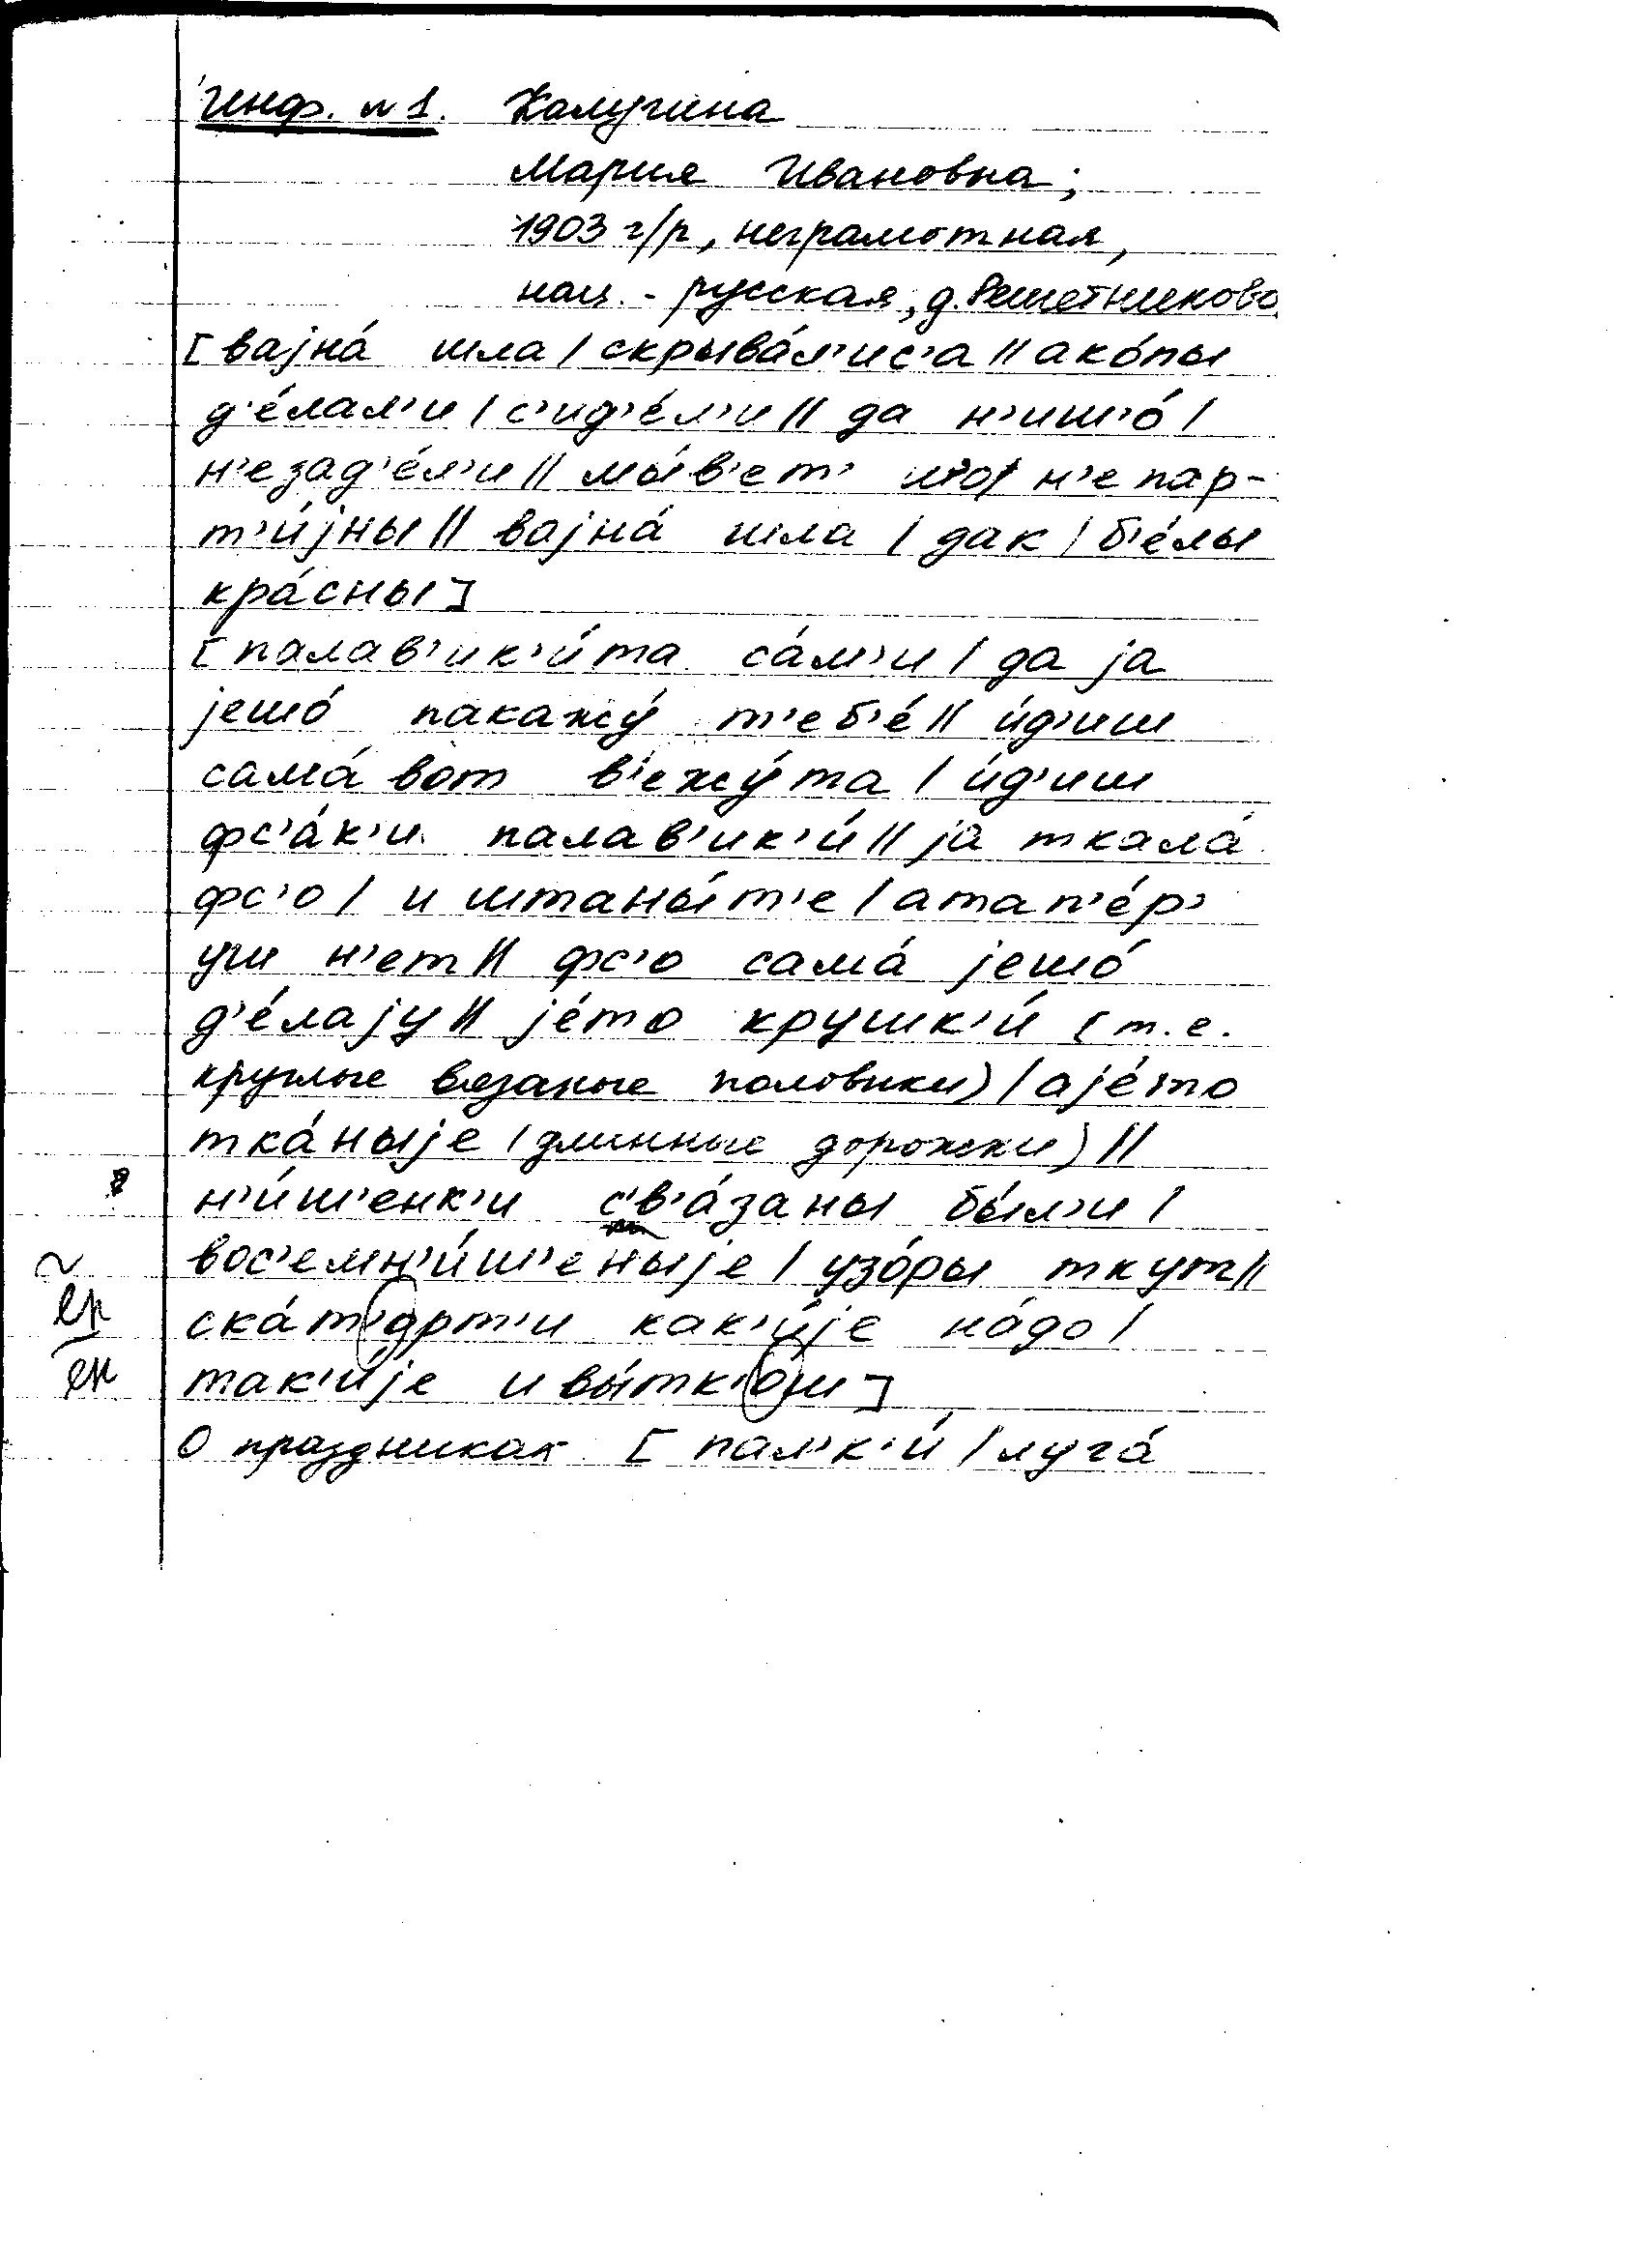 Инф. № 1. Калугина
Мария Ивановна;
1903 г/р, неграмотная,
нац. - русская, д. Решетниково.
[вајна́ шла / скрыва́л'ис'а // ако́пы
д'е́лал'и / с'ид'е́л'и // да н'иш'о́ /
н'е зад'е́л'и // мы́в'ет' што/ н'е пар-
т'и́јны // вајна́ шла / дак / б'е́лы
кра́сны]
[палав'ик'и́та са́м'и / да ја
јешо́ пакажу́ т'еб'е́ // и́д'иш
сама́ вот в'ежу́та / и́д'иш
фс'а́к'и палав'ик'и́ // ја ткала́
фс'о / и штаны́т'е / атап'е́р'
уш н'ет // фс'о сама́ јешо́
д'е́лају // је́то крушк'и́ (т.е.
круглые вязаные половики) / aје́то
тка́ныје (длинные дорожки) //
н'и́ш'енк'и с'в'а́заны бы́л'и /
вос'емн'и́ш'еныје / узо́ры ткут //
ска́т'орт'и как'и́је на́до /
так'и́је и вы́тк'ош]
О праздниках [пал'к'и́ / луга́
ер
ек